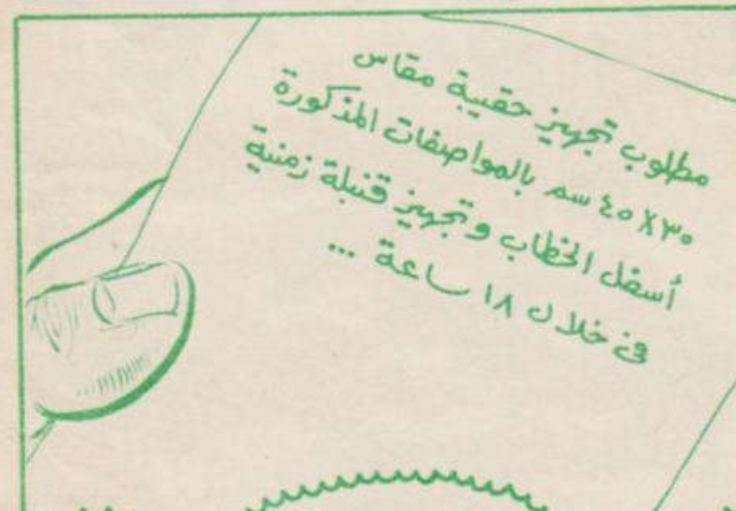 مطلوب تجهيز حقيبة مقاس
٣٠×٤٥ سم بالمواصفات المذكورة
أسفل الخطاب وتجهيز قنبلة زمنية
فى خلال ١٨ ساعة ...